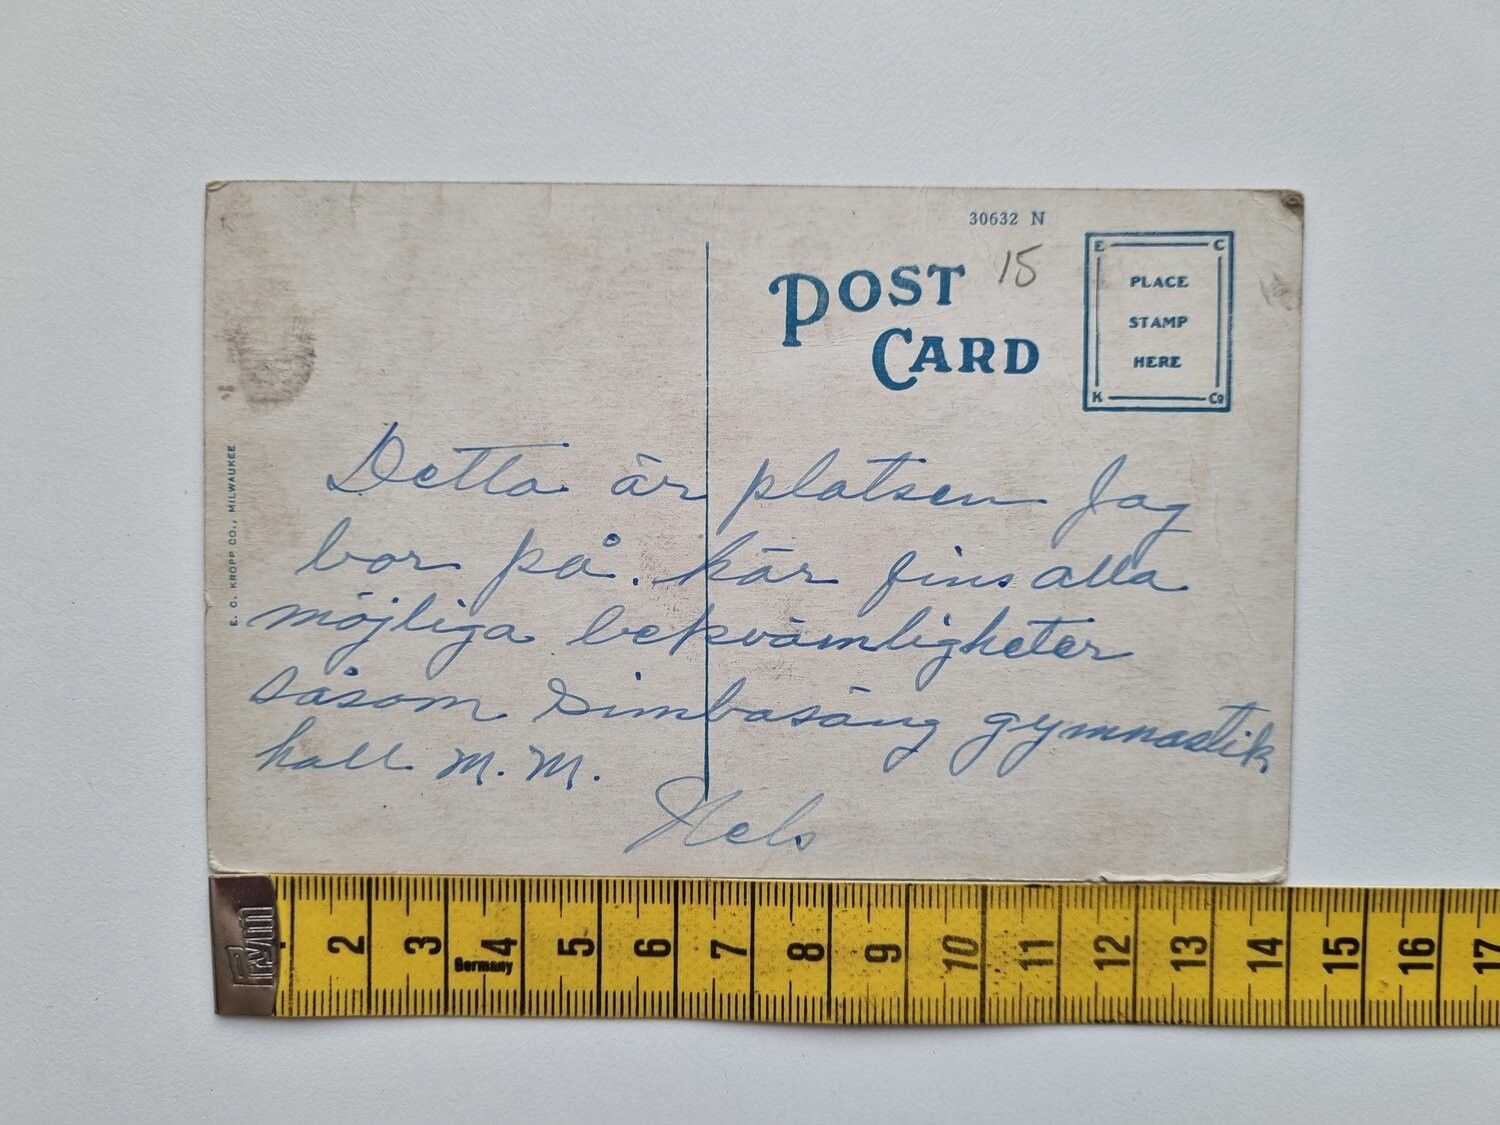 30632 N
POST 15
CARD
E C
PLACE
STAMP
HERE
K Co
E. C. KROPP CO., MILWAUKEE
Detta är platsen Jag
bor på. här fins alla
möjliga bekvämligheter
såsom simbasäng gymnastik
hall m.m.
Nels
Prym
2 3 4 5 6 7 8 9 10 11 12 13 14 15 16 17
Germany